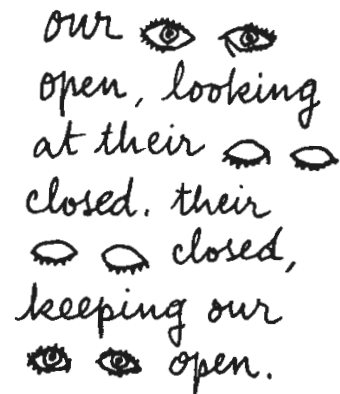 our
open, looking
at their
closed. their
closed,
keeping our
open.